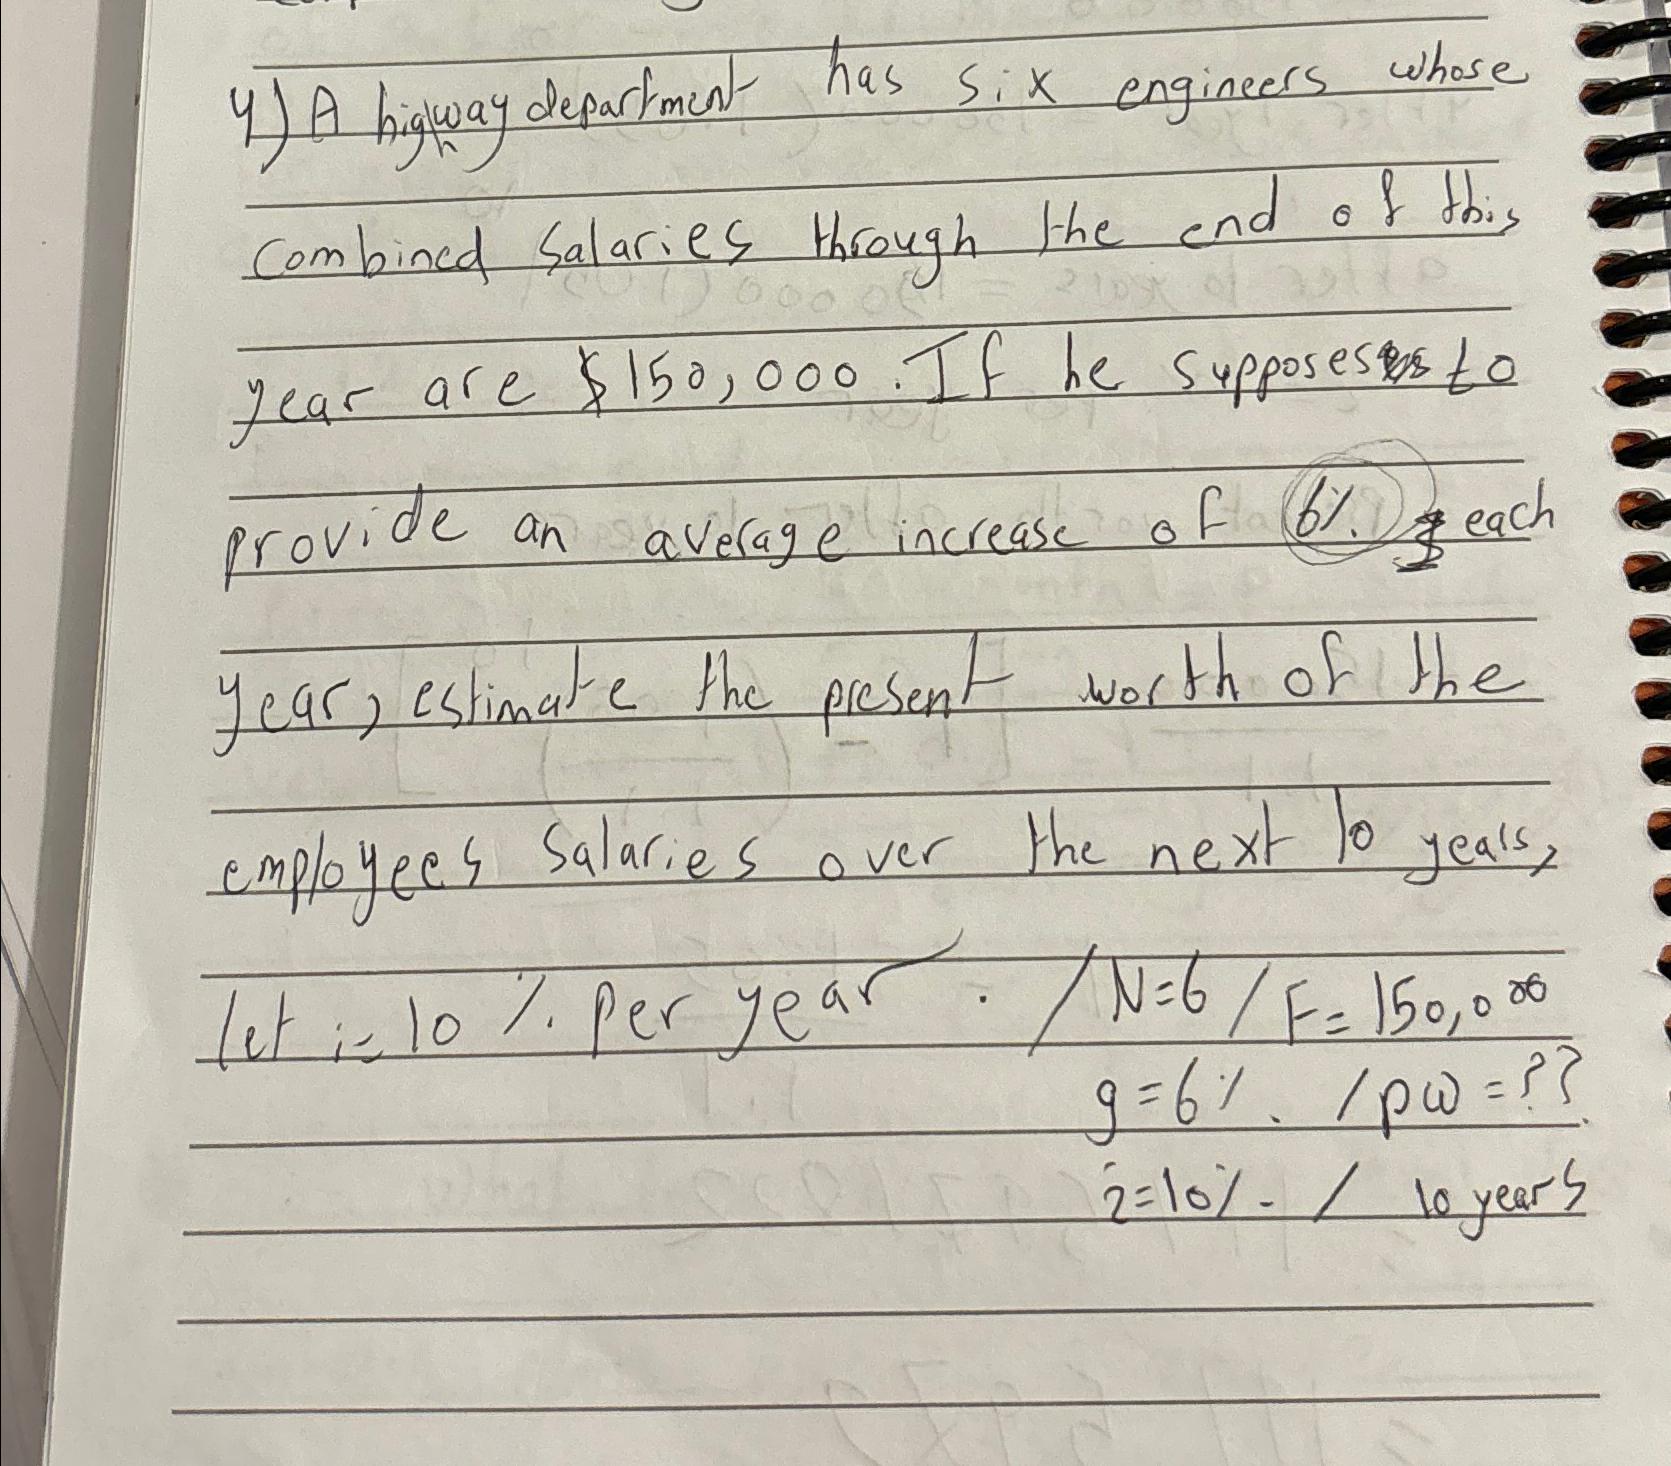 4) A highway department has six engineers whose
combined salaries through the end of this
year are $150,000. If he supposes to
provide an average increase of 6% each
year, estimate the present worth of the
employees salaries over the next 10 years,
let i= 10 % per year. / N=6 / F= 150,000
g=6%. / pw=??
i=10% / 10 years